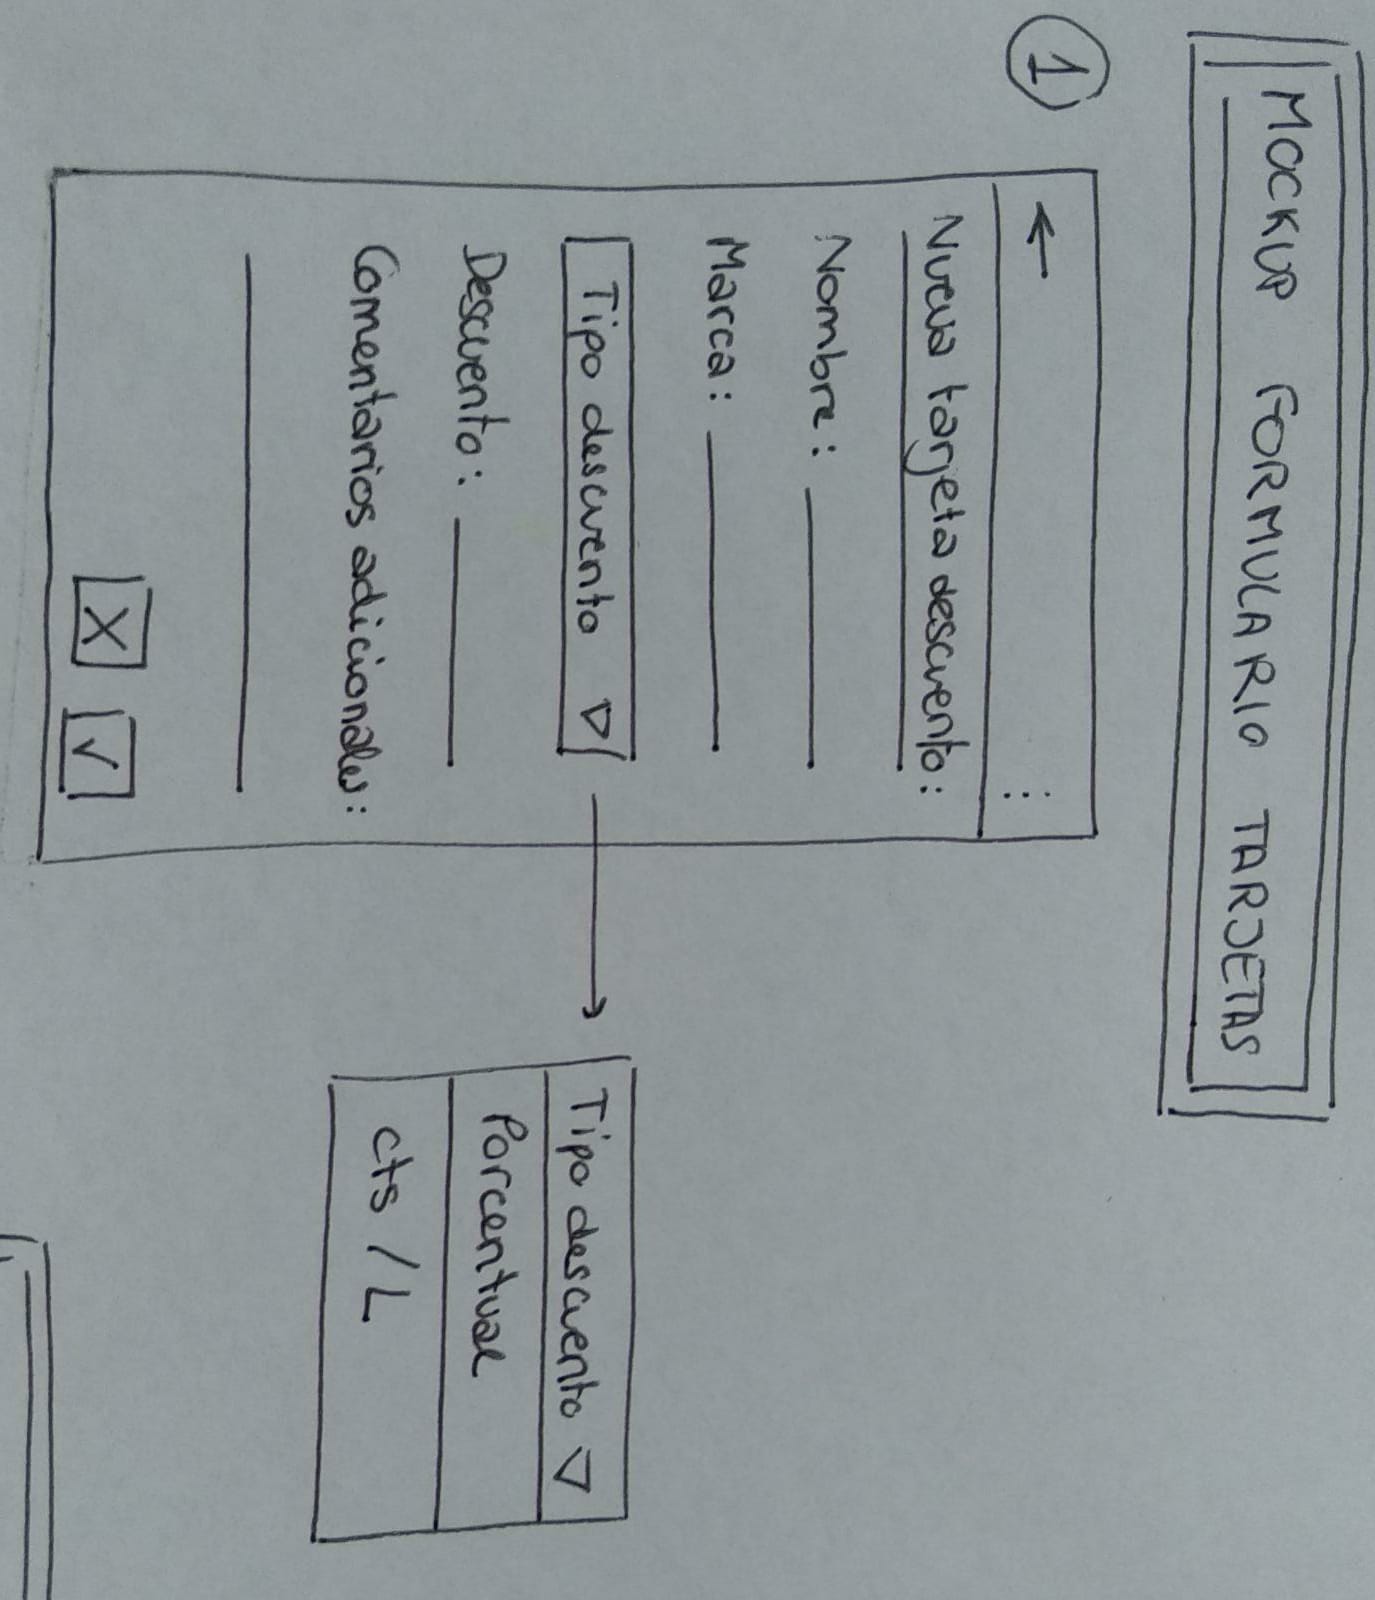 MOCKUP FORMULARIO TARJETAS
1
Nueva tarjeta descuento:
Nombre:
Marca:
Tipo descuento
Descuento:
Comentarios adicionales:
X
Tipo descuento
Porcentual
cts / L